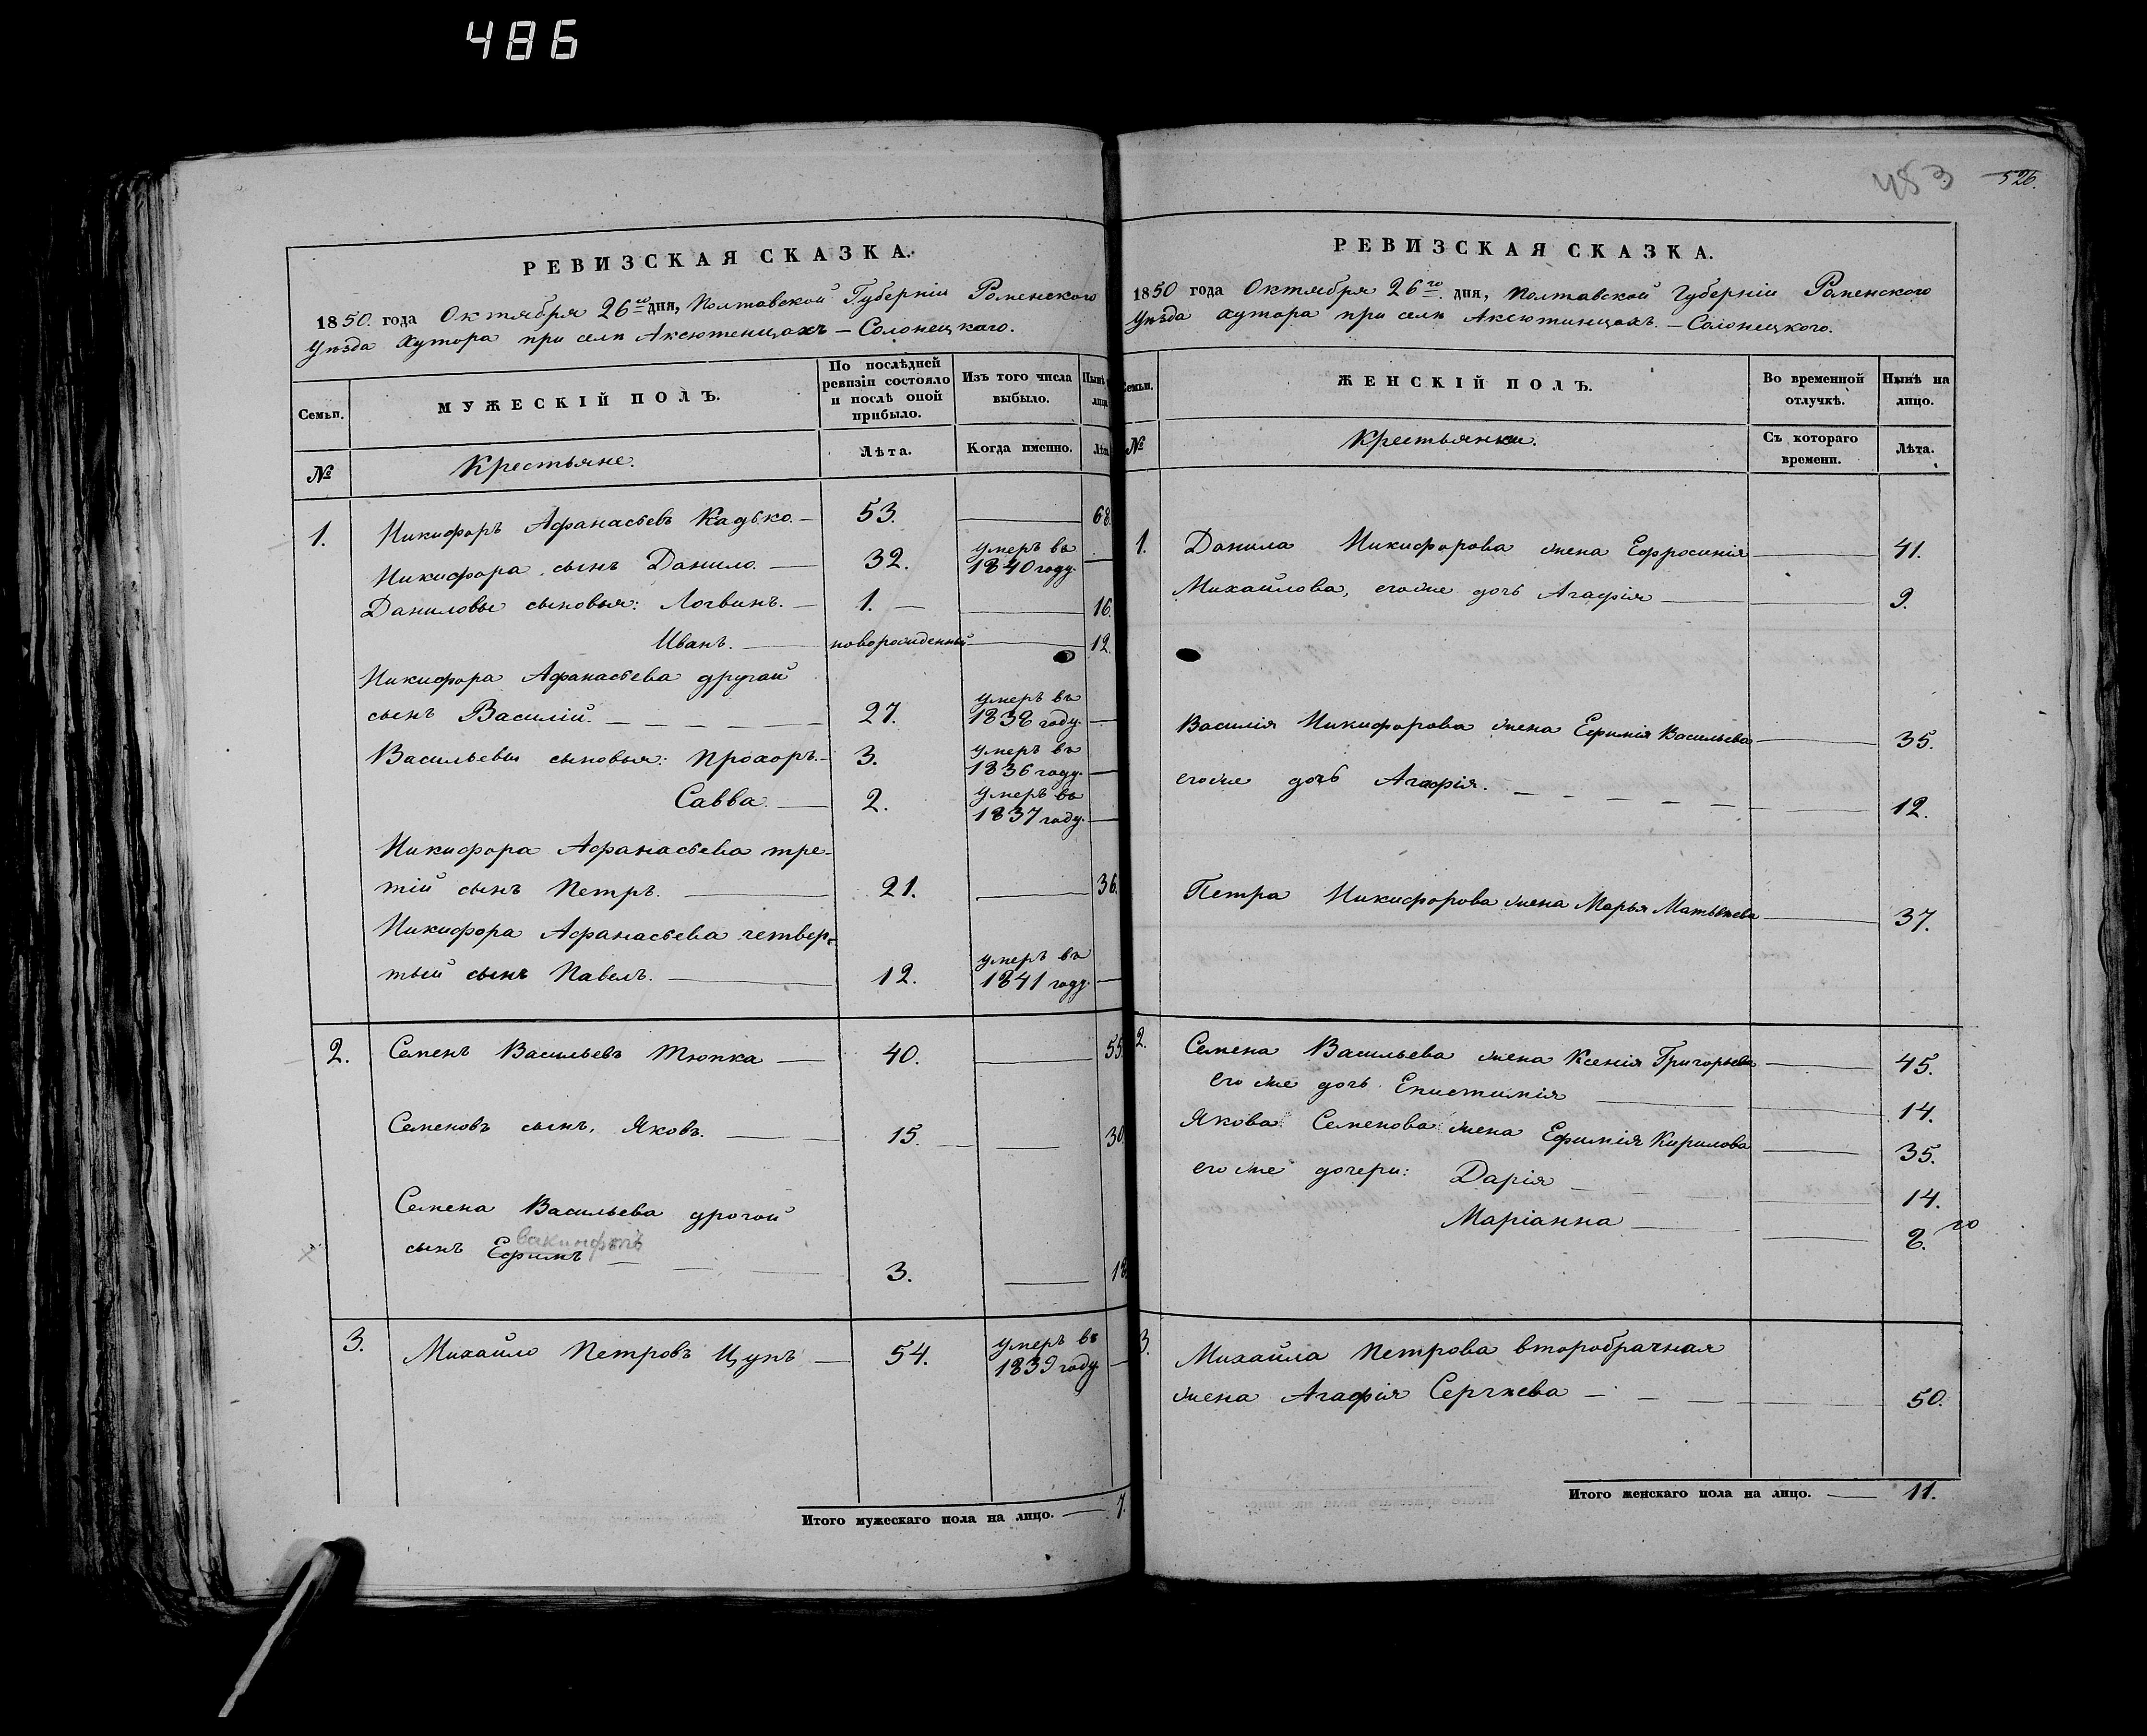 486
483 526.
РЕВИЗСКАЯ СКАЗКА.
1850. года Октября 26го дня, Полтавской Губерніи Роменского
Уѣзда Хутора при селѣ Аксютенцахъ – Солонецкаго.
Семьи.
МУЖЕСКІЙ ПОЛЪ.
По послѣдней ревизіи состояло и послѣ оной прибыло.
Изъ того числа выбыло.
Нынѣ
лицо
№
Крестьяне.
Лѣта.
Когда именно.
Лѣта
1. Никифоръ Афанасьевъ Кадько. – 53. 68.
Никифора сынъ Данило. 32. умеръ въ 1840 году.
Даниловы сыновья: Логвинъ. – 1. 16.
Иванъ. новорожденный 12.
Никифора Афанасьева другой
сынъ Василій. 27. умеръ въ 1838 году.
Васильевы сыновья: Прохоръ. – 3. умеръ въ 1836 году.
Савва. 2. умеръ въ 1837 году.
Никифора Афанасьева тре-
тій сынъ Петръ. 21. 36.
Никифора Афанасьева четвер-
тый сынъ Павелъ. 12. умеръ въ 1841 году.
2. Семенъ Васильевъ Тюпка 40. 55.
Семеновъ сынъ, Яковъ. 15. 30.
Семена Васильева другой
вакинфъ
сынъ Ефимъ 3. 18
3. Михайло Петровъ Цупъ 54. умеръ въ 1839 году.
Итого мужескаго пола на лицо. 7.
РЕВИЗСКАЯ СКАЗКА.
1850 года Октября 26го дня, Полтавской Губерніи Роменского
Уѣзда хутора при селѣ Аксютинцахъ. – Солонецкого.
Семьи.
ЖЕНСКІЙ ПОЛЪ.
Во временной отлучкѣ.
Нынѣ на лицо.
№
Крестьянки.
Съ котораго времени.
Лѣта.
1. Данила Никифорова жена Ефросинія 41.
Михайлова, егоже дочь Агафія 9.
Василія Никифорова жена Ефимія Васильева 35.
егоже дочь Агафія. 12.
Петра Никифорова жена Марья Матвѣева 37.
2. Семена Васильева жена Ксенія Григорьева 45.
его же дочь Епистимія 14.
Якова Семенова жена Ефимія Кирилова 35.
его же дочери: Дарія 14.
Маріанна 8.
3. Михайла Петрова второбрачная
жена Агафія Сергѣева 50.
Итого женскаго пола на лицо. 11.